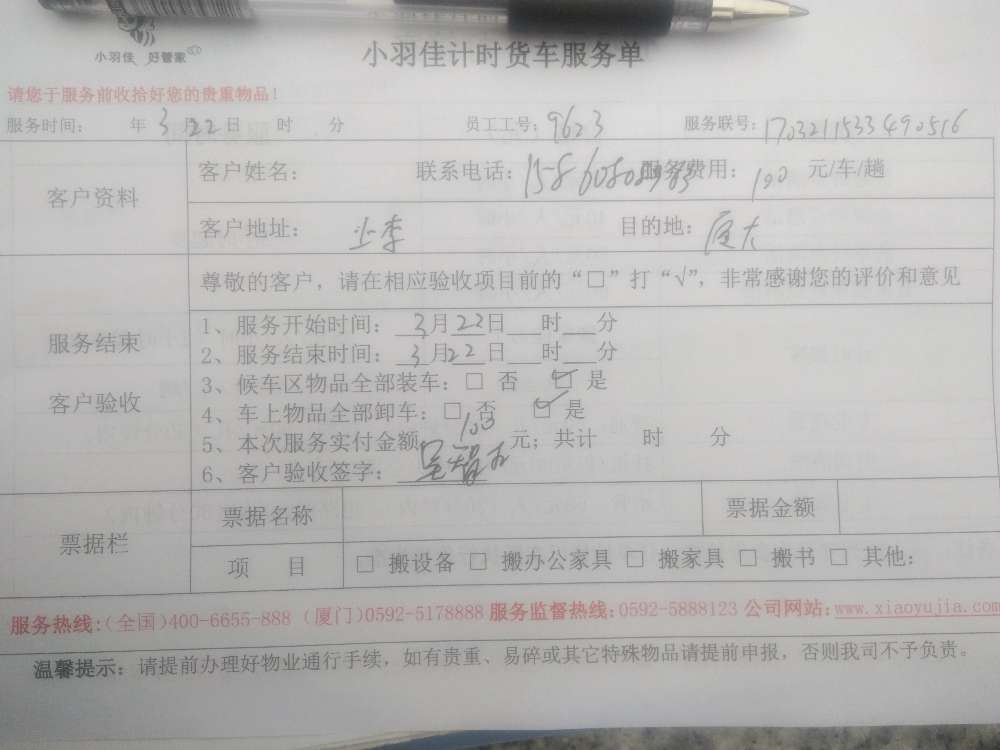 小羽佳 好管家
小羽佳计时货车服务单
请您于服务前收拾好您的贵重物品！
服务时间： 年 3月22日 时 分 员工工号：9623 服务联号：1703211533490516
客户资料
客户姓名： 联系电话： 服务费用：100 元/车/趟
客户地址： 上李 目的地：厦大
尊敬的客户，请在相应验收项目前的“□”打“√”，非常感谢您的评价和意见
服务结束
客户验收
1、服务开始时间：3月22日___时___分
2、服务结束时间：3月22日___时___分
3、候车区物品全部装车：□ 否 ☑ 是
4、车上物品全部卸车：□ 否 ☑ 是
5、本次服务实付金额 100 元；共计 时 分
6、客户验收签字：
票据栏
票据名称 票据金额
项 目 □ 搬设备 □ 搬办公家具 □ 搬家具 □ 搬书 □ 其他：
服务热线：(全国)400-6655-888 (厦门)0592-5178888 服务监督热线：0592-5888123 公司网站：www.xiaoyujia.com
温馨提示：请提前办理好物业通行手续，如有贵重、易碎或其它特殊物品请提前申报，否则我司不予负责。